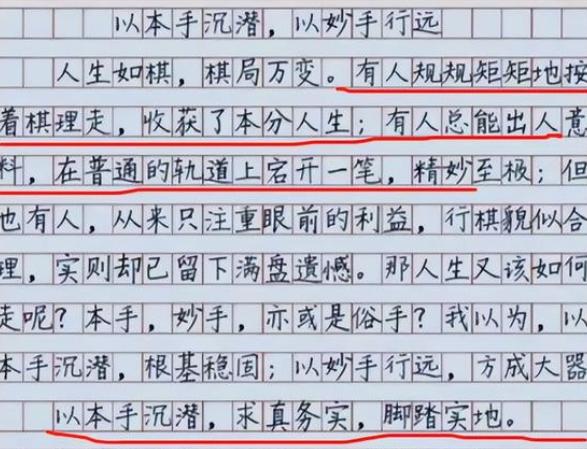 以本手沉潜，以妙手行远
人生如棋，棋局万变。有人规规矩矩地按
着棋理走，收获了本分人生；有人总能出人意
料，在普通的轨道上宕开一笔，精妙至极；但
也有人，从来只注重眼前的利益，行棋貌似合
理，实则却已留下满盘遗憾。那人生又该如何
走呢？本手，妙手，亦或是俗手？我以为，以
本手沉潜，根基稳固；以妙手行远，方成大器
以本手沉潜，求真务实，脚踏实地。